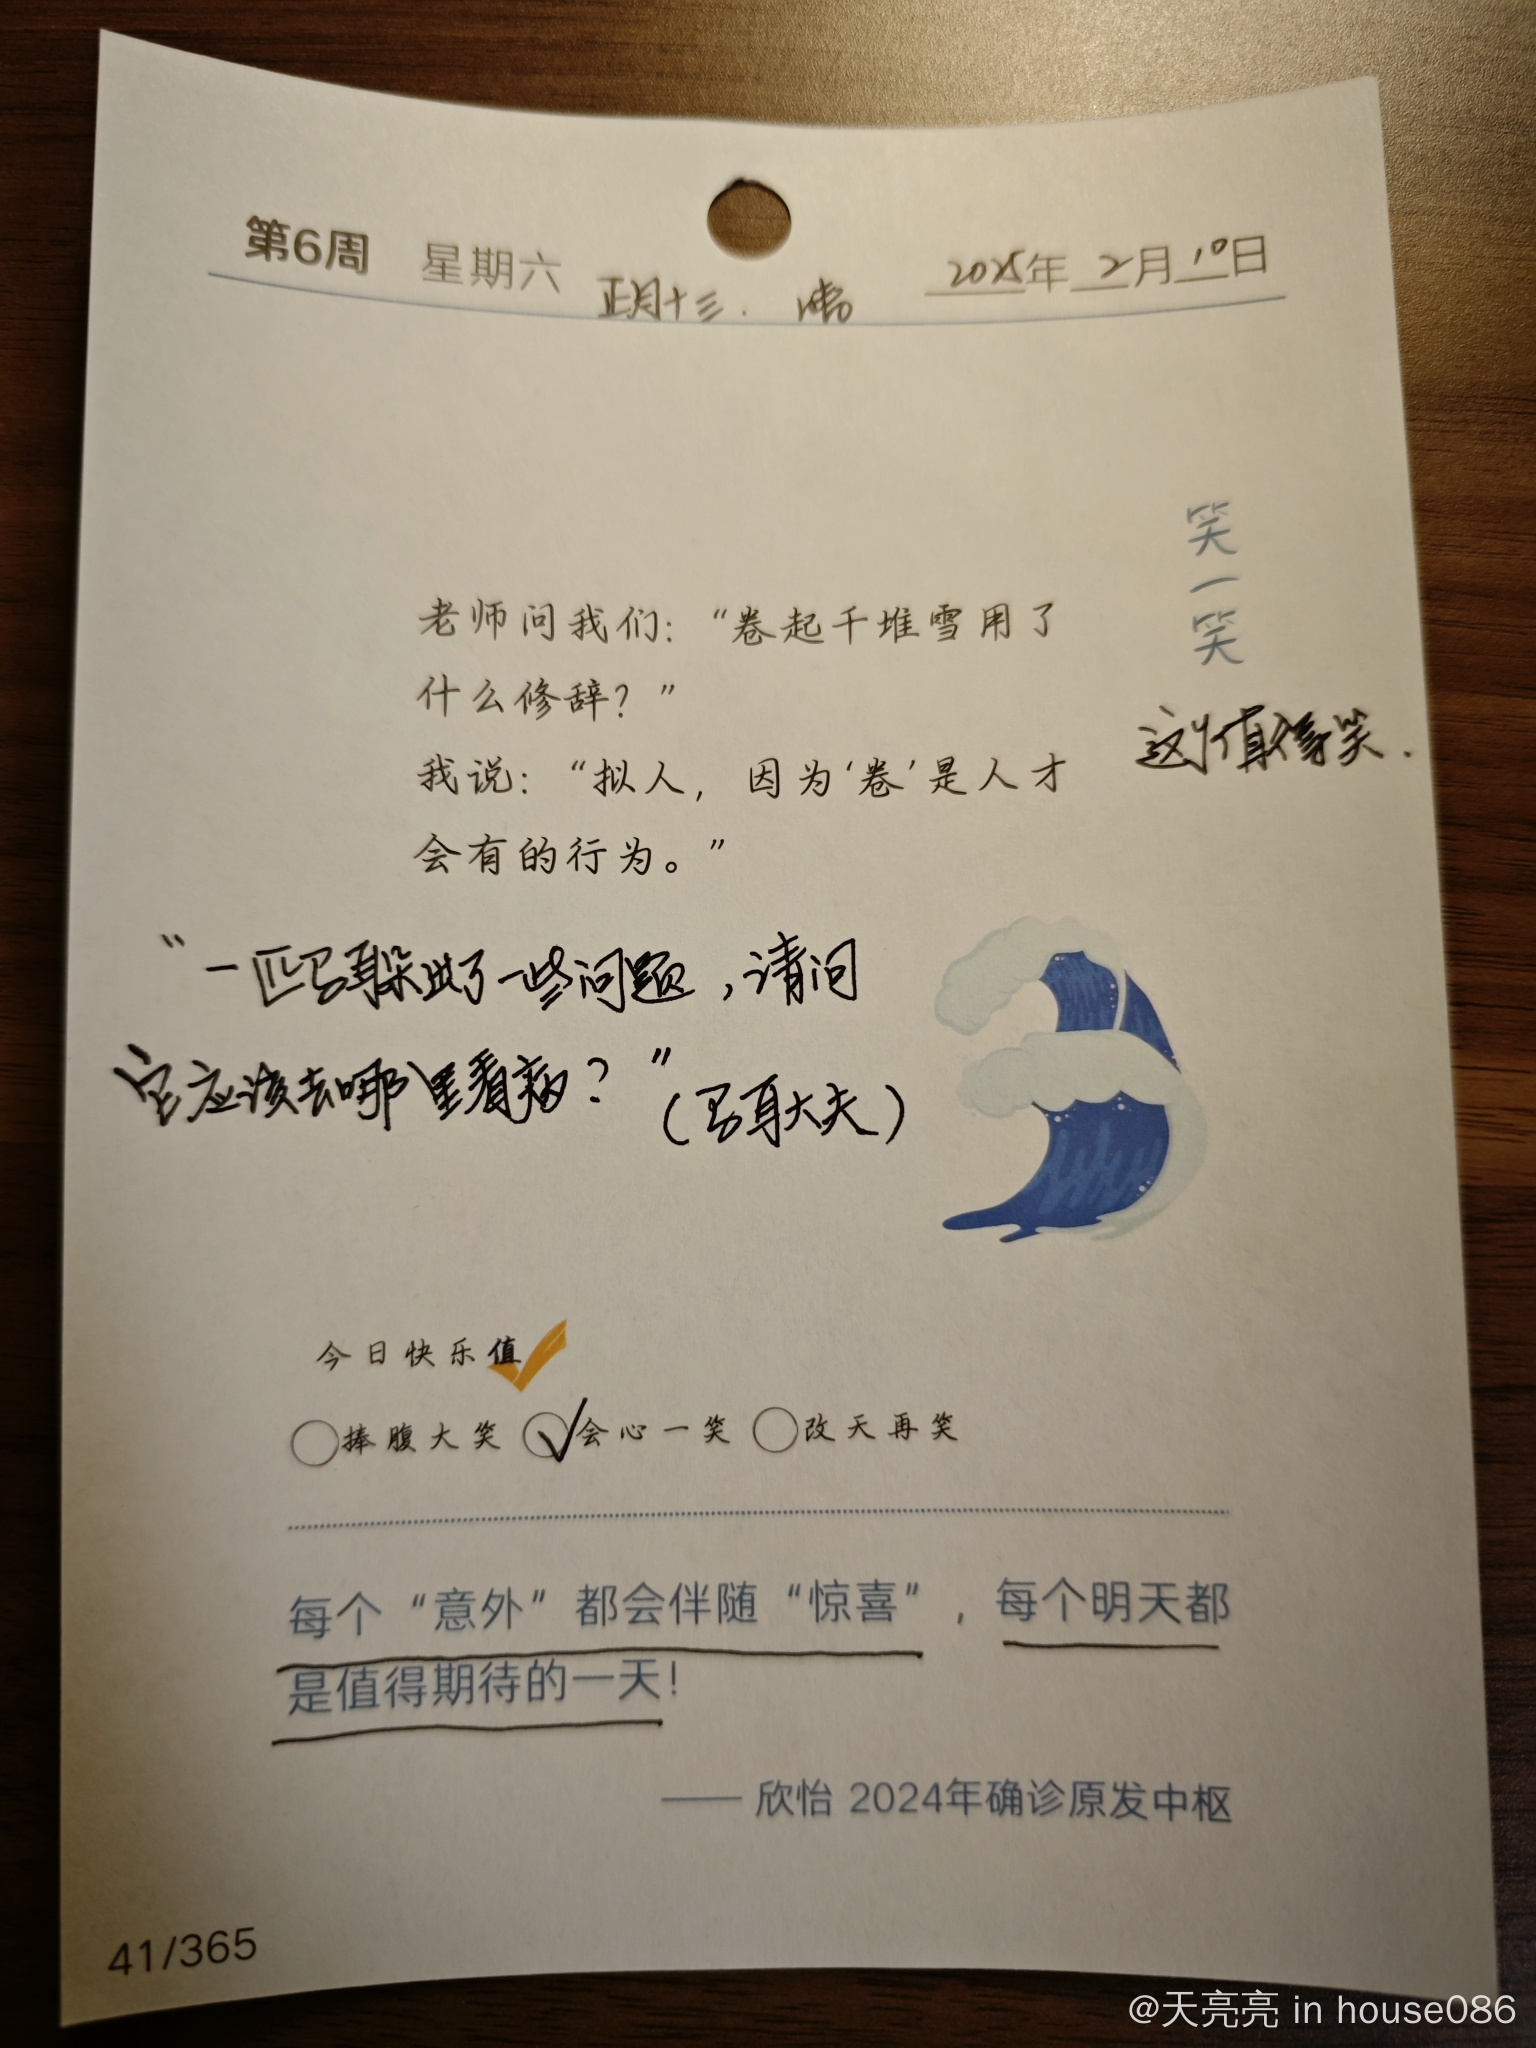 第6周 星期六 正月十三. 晴 2025年 2月 10日
笑一笑
老师问我们：“卷起千堆雪用了
什么修辞？”
这个值得笑.
我说：“拟人，因为‘卷’是人才
会有的行为。”
“一匹马耳朵出了一些问题，请问
它应该去哪里看病？”
（马耳大夫）
今日快乐值
捧腹大笑 会心一笑 改天再笑
每个“意外”都会伴随“惊喜”，每个明天都
是值得期待的一天！
—— 欣怡 2024年确诊原发中枢
41/365
@天亮亮 in house086